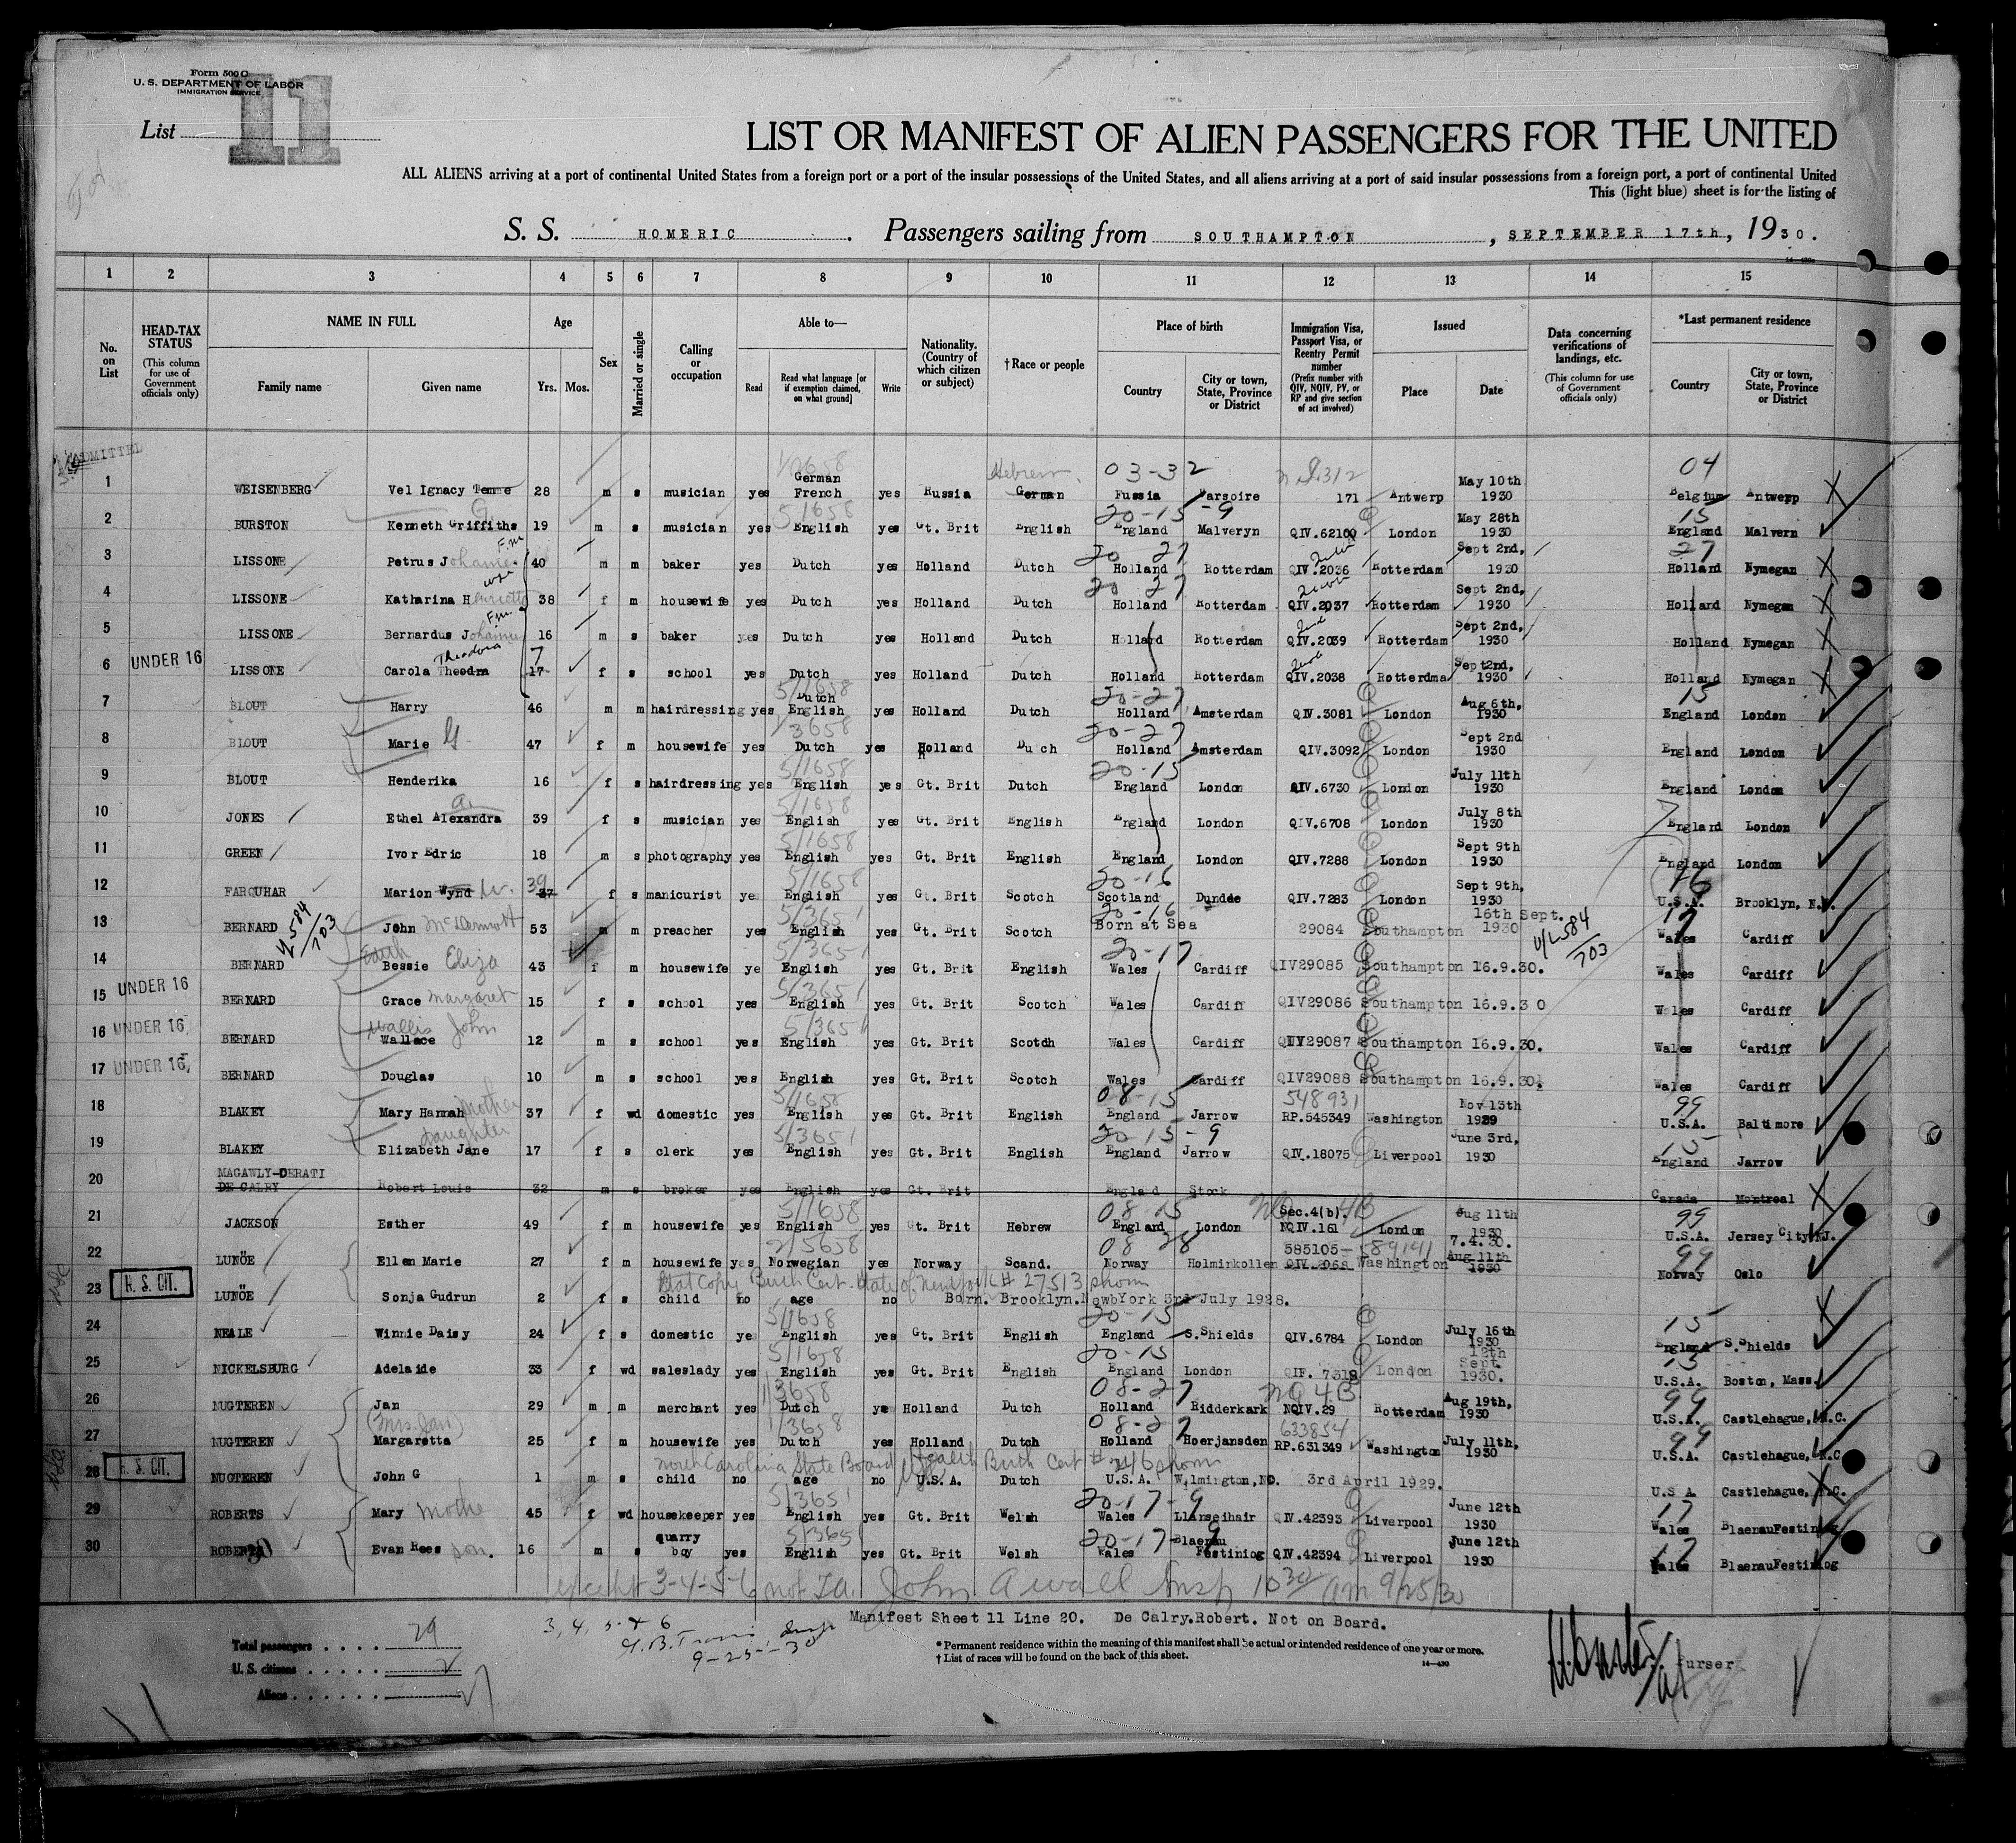 Form 500 C
U. S. DEPARTMENT OF LABOR
IMMIGRATION SERVICE
List 11
LIST OR MANIFEST OF ALIEN PASSENGERS FOR THE UNITED
ALL ALIENS arriving at a port of continental United States from a foreign port or a port of the insular possessions of the United States, and all aliens arriving at a port of said insular possessions from a foreign port, a port of continental United
This (light blue) sheet is for the listing of
S. S. HOMERIC. Passengers sailing from SOUTHAMPTON, SEPTEMBER 17th, 1930.
1 2 3 4 5 6 7 8 9 10 11 12 13 14 15
No. on List
HEAD-TAX STATUS (This column for use of Government officials only)
NAME IN FULL
Family name Given name
Age
Yrs. Mos.
Sex
Married or single
Calling or occupation
Able to—
Read Read what language [or if exemption claimed, on what ground] Write
Nationality. (Country of which citizen or subject)
†Race or people
Place of birth
Country City or town, State, Province or District
Immigration Visa, Passport Visa, or Reentry Permit number (Prefix number with QIV, NQIV, PV, or RP and give section of act involved)
Issued
Place Date
Data concerning verifications of landings, etc. (This column for use of Government officials only)
*Last permanent residence
Country City or town, State, Province or District
ADMITTED
Hebrew 03-32 04
1 WEISENBERG Vel Ignacy Temme 28 m s musician yes German French yes Russia German Russia Varsoire 171 Antwerp May 10th 1930 Belgium Antwerp
5/1658 20-15-9 15
2 BURSTON Kenneth Griffiths 19 m s musician yes English yes Gt. Brit English England Malveryn QIV.62100 London May 28th 1930 England Malvern
20 27 27
3 LISSONE Petrus J 40 m m baker yes Dutch yes Holland Dutch Holland Rotterdam QIV.2036 Rotterdam Sept 2nd, 1930 Holland Nymegan
20 27
4 LISSONE Katharina Henrietta 38 f m housewife yes Dutch yes Holland Dutch Holland Rotterdam QIV.2037 Rotterdam Sept 2nd, 1930 Holland Nymegan
5 LISSONE Bernardus J 16 m s baker yes Dutch yes Holland Dutch Holland Rotterdam QIV.2039 Rotterdam Sept 2nd, 1930 Holland Nymegan
6 UNDER 16 LISSONE Carola Theodra Theodora 17 7 f s school yes Dutch yes Holland Dutch Holland Rotterdam QIV.2038 Rotterdma Sept2nd, 1930 Holland Nymegan
5/1658 20-27 15
7 BLOUT Harry 46 m m hairdressing yes Dutch English yes Holland Dutch Holland Amsterdam QIV.3081 London Aug 6th, 1930 England London
1/3658 20-27
8 BLOUT Marie G 47 f m housewife yes Dutch yes Holland Du ch Holland Amsterdam QIV.3092 London Sept 2nd 1930 England London
5/1658 20-15
9 BLOUT Henderika 16 f s hairdressing yes English yes Gt. Brit Dutch England London QIV.6730 London July 11th 1930 England London
5/1658
10 JONES Ethel Alexandra 39 f s musician yes English yes Gt. Brit English England London QIV.6708 London July 8th 1930 England London
5/1658
11 GREEN Ivor Edric 18 m s photography yes English yes Gt. Brit English England London QIV.7288 London Sept 9th 1930 England London
5/1658 20-16 16
12 FARQUHAR Marion Wynd W. 37 39 f s manicurist yes English yes Gt. Brit Scotch Scotland Dundee QIV.7283 London Sept 9th, 1930 U.S.A. Brooklyn, N.Y.
5/3651 20-16 17
13 BERNARD John McDermott 53 m m preacher yes English yes Gt. Brit Scotch Born at Sea 29084 Southampton 16th Sept. 1930 Wales Cardiff
V/L 584/703
5/3651 20-17
14 BERNARD Edith Bessie Eliza 43 f m housewife ye English yes Gt. Brit English Wales Cardiff QIV29085 Southampton 16.9.30. Wales Cardiff
5/3651
15 UNDER 16 BERNARD Grace Margaret 15 f s school yes English yes Gt. Brit Scotch Wales Cardiff QIV29086 Southampton 16.9.3 0 Wales Cardiff
5/3651
16 UNDER 16 BERNARD Wallace Wallis John 12 m s school yes English yes Gt. Brit Scotdh Wales Cardiff QIV29087 Southampton 16.9.30. Wales Cardiff
17 UNDER 16 BERNARD Douglas 10 m s school yes English yes Gt. Brit Scotch Wales Cardiff QIV29088 Southampton 16.9.30. Wales Cardiff
5/1658 08-15 548931 99
18 BLAKEY Mary Hannah Mother 37 f wd domestic yes English yes Gt. Brit English England Jarrow RP.545349 Washington Nov 13th 1929 U.S.A. Baltimore
5/3651 20-15-9 15
19 BLAKEY Daughter Elizabeth Jane 17 f s clerk yes English yes Gt. Brit English England Jarrow QIV.18075 Liverpool June 3rd, 1930 England Jarrow
20 MAGAWLY-CERATI DE CALRY Robert Louis 32 m s broker yes English yes Gt. Brit England Stock Canada Montreal
5/1658 08-15 NQ 4B 99
21 JACKSON Esther 49 f m housewife yes English yes Gt. Brit Hebrew England London Sec.4(b). NQIV.161 London Aug 11th 1930 U.S.A. Jersey City NJ.
2/5658 08 28 585105-589141 7.4.30. 99
22 LUNÖE Ellen Marie 27 f m housewife yes Norwegian yes Norway Scand. Norway Holminkollen Washington Aug 11th 1930 Norway Oslo
Stat Copy Birth Cert. State of New York # 27513 shown
23 U. S. CIT. LUNÖE Sonja Gudrun 2 f s child no age no Born. Brooklyn.NewbYork 3rd July 1928.
5/1658 20-15 15
24 NEALE Winnie Daisy 24 f s domestic yes English yes Gt. Brit English England S.Shields QIV.6784 London July 16th 1930 England S.Shields
5/1658 20-15 15
25 NICKELSBURG Adelaide 33 f wd saleslady yes English yes Gt. Brit English England London QIF. 7319 London 12th Sept. 1930. U.S.A. Boston, Mass.
1/3658 08-27 NQ 4B 99
26 NUGTEREN Jan 29 m m merchant yes Dutch yes Holland Dutch Holland Ridderkark NQIV.29 Rotterdam Aug 19th, 1930 U.S.A. Castlehague, N.C.
1/3658 08-27 633854 99
27 NUGTEREN (Mrs. Jan) Margaretta 25 f m housewife yes Dutch yes Holland Dutch Holland Hoerjansden RP.631349 Washington July 11th, 1930 U.S.A. Castlehague, N.C
North Carolina State Board Health Birth Cert # 246 shown
28 U. S. CIT. NUGTEREN John G 1 m s child no age no U.S.A. Dutch U.S.A. Wilmington,NC. 3rd April 1929. U S A Castlehague, N.C.
5/3651 20-17-9 17
29 ROBERTS Mary Mother 45 f wd housekeeper yes English yes Gt. Brit Welsh Wales Llanseihair QIV.42393 Liverpool June 12th 1930 Wales BlaenauFestiniog
5/3651 20-17-9 17
30 ROBERTS Evan Rees son. 16 m s quarry boy yes English yes Gt. Brit Welsh Wales Blaenau Festiniog QIV.42394 Liverpool June 12th 1930 Wales BlaenauFestiniog
except 3-4-5-6 John Awall Insp 10 30 am 9/25/30
Manifest Sheet 11 Line 20. De Calry.Robert. Not on Board.
3, 4, 5 + 6
9-25-30
Total passengers . . . . 29
U. S. citizens . . . . . 2
Aliens . . . . . . 27
* Permanent residence within the meaning of this manifest shall be actual or intended residence of one year or more.
† List of races will be found on the back of this sheet.
14—430
Purser